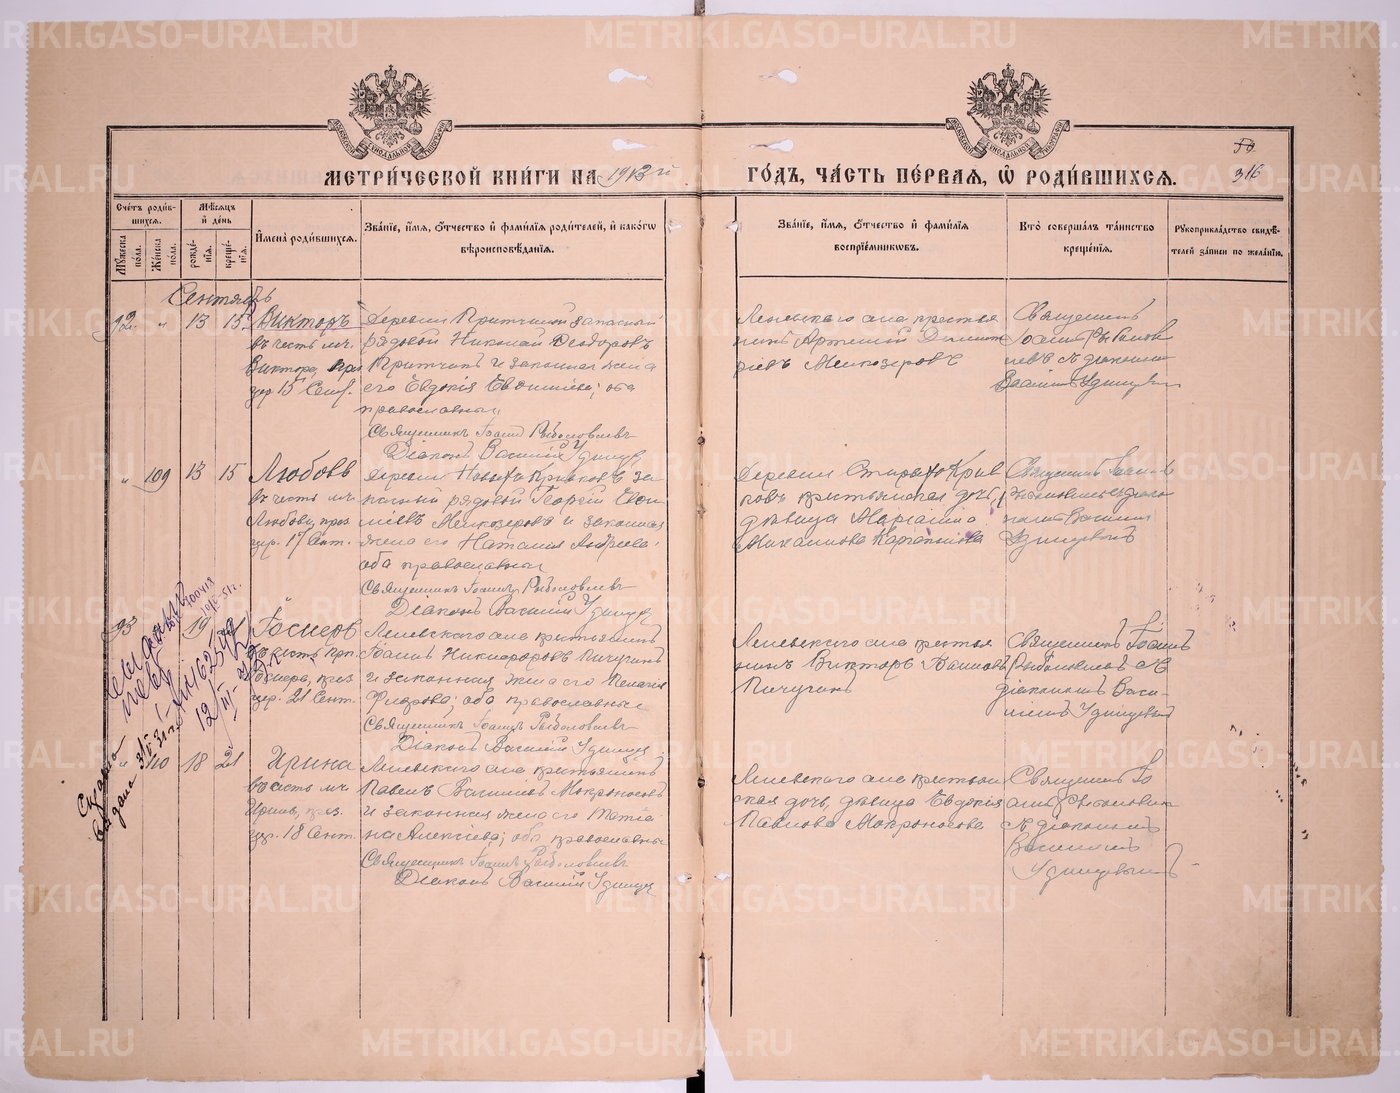 METRIKI.GASO-URAL.RU
50
316
МЕТРИ́ЧЕСКОЙ КНИ́ГИ НА 1913 й
ГО́ДЪ, ЧА́СТЬ ПЕ́РВАЯ, Ѿ РОДИ́ВШИХСЯ.
Сче́тъ роди́в-
шихся.
Му́жеска по́ла.
Же́нска по́ла.
Мѣ́сяцъ и҆ де́нь
рожде́-
нїя.
креще́-
нїя.
И҆мена̀ роди́вшихся.
Зва́нїе, и҆́мя, ѻ҆́тчество и҆ фами́лїя роди́телей, и҆ како́гѡ
вѣроисповѣ́данїя.
Зва́нїе, и҆́мя, ѻ҆́тчество и҆ фами́лїя
воспрїе́мниковъ.
Кто̀ соверша́лъ та́инство
креще́нїя.
Рукоприкла́дство свидѣ́-
телей за́писи по жела́нїю.
Сентябрь
92 " 13 15 Викторъ
въ честь мч.
Виктора, праз
дер 15 Сент.
деревни Притчиной запасный
рядовой Николай Ѳеодоровъ
Притчинъ и законная жена
его Евдокія Евѳиміева; оба
православные
Священникъ Іоаннъ Рыболовлевъ
Діаконъ Василій Удинцевъ
Ленёвскаго села крестья
нинъ Артемій Димит
ріевъ Мелкозеровъ
Священникъ
Іоаннъ Рыболов
левъ съ діакономъ
Василіемъ Удинцевымъ
" 109 13 15 Любовь
въ честь мч
Любови, праз
дер. 17 Сент.
деревни Новыхъ Кривковъ за
пасный рядовой Георгій Евѳи
міевъ Мелкозеровъ и законная
жена его Наталія Андреева;
оба православные
Священникъ Іоаннъ Рыболовлевъ
Діаконъ Василій Удинцевъ
деревни Старыхъ Крив
ковъ крестьянская дочь,
дѣвица Маріанна
Священникъ Іоаннъ
Рыболовлевъ съ діако
номъ Василіемъ
Удинцевымъ
93 " 19 Іосифъ
въ честь
Іосифа, праз
дер. 21 Сент.
Леневскаго села крестьянинъ
Іоаннъ Никифоровъ Пичугинъ
и законная жена его Пелагія
оба православные
Священникъ Іоаннъ Рыболовлевъ
Діаконъ Василій Удинцевъ
Леневскаго села крестья
нинъ Викторъ
Пичугинъ
Священникъ Іоаннъ
Рыболовлевъ съ
діакономъ Васи-
ліемъ Удинцевымъ
" 110 18 21 Ирина
въ честь мч
Ирины, праз.
дер. 18 Сент.
Леневскаго села крестьянинъ
Павелъ Василіевъ Мокроносовъ
и законная жена его Татіа
на Алексіева; оба православные
Священникъ Іоаннъ Рыболовлевъ
Діаконъ Василій Удинцевъ
Леневскаго села крестьян
ская дочь, дѣвица Евдокія
Павлова Мокроносова
Священникъ Іо
аннъ Рыболовлевъ
съ діакономъ
Василіемъ
Удинцевымъ